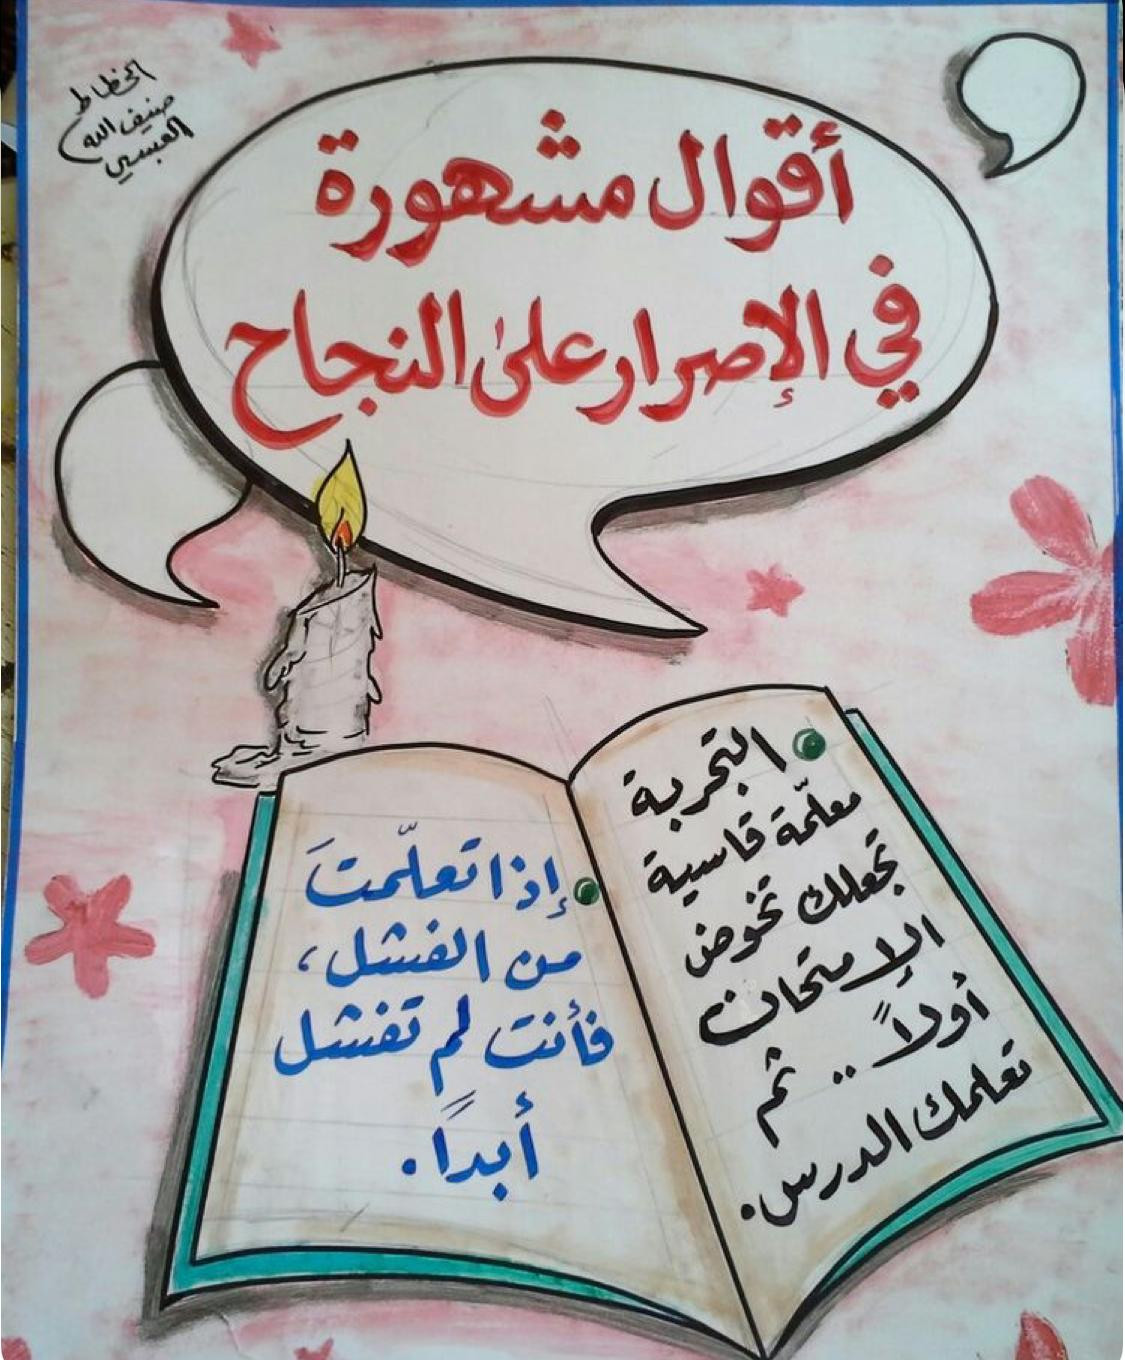 الخطاط
ضيف الله
العبسي
أقوال مشهورة
في الإصرار على النجاح
التجربة
معلّمة قاسية
تجعلك تخوض
الإمتحان
أولاً .. ثم
تعلمك الدرس.
إذا تعلّمتَ
من الفشل،
فأنت لم تفشل
أبداً.